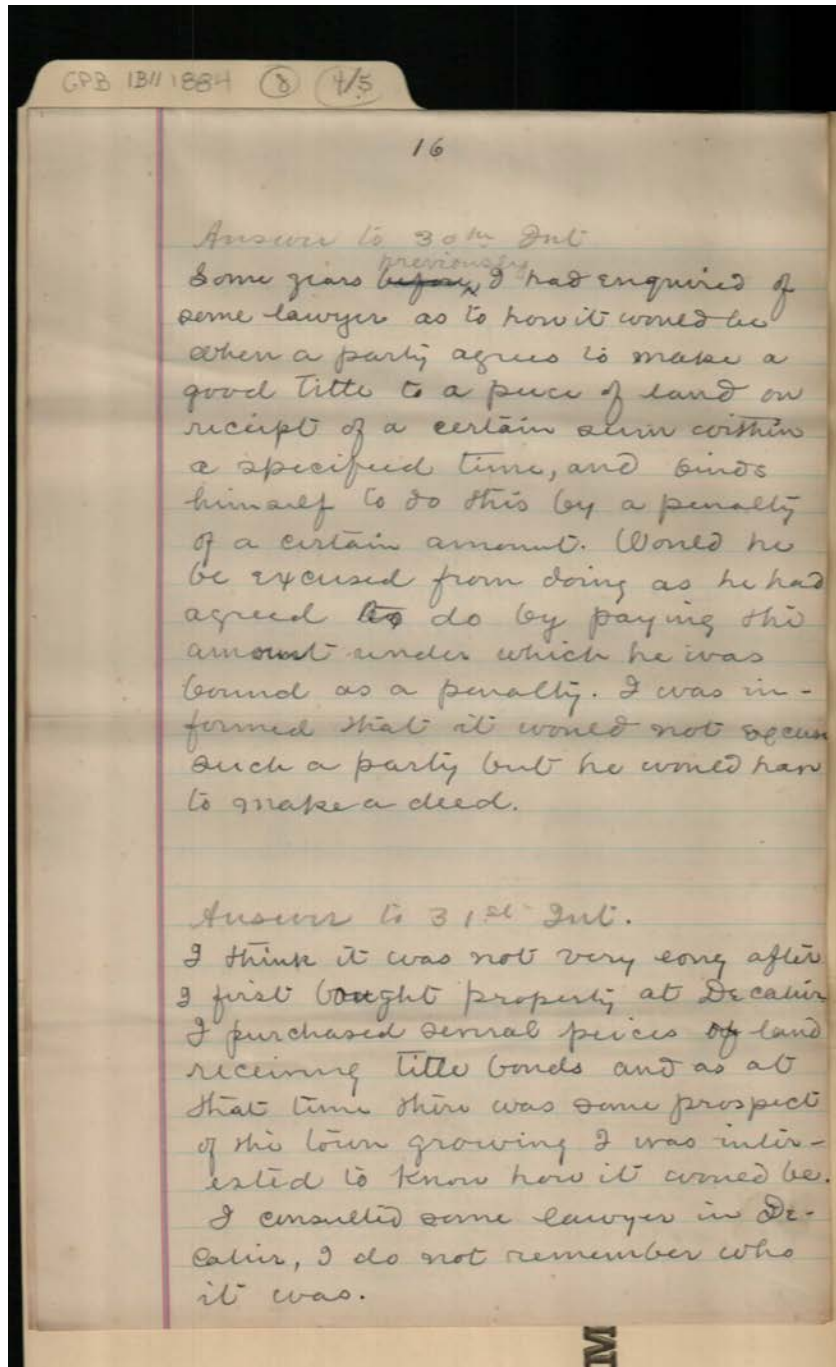 GPB 1B11 1884 8 4/5
16
Answer to 30th Int
previously
Some years before I had enquired of
some lawyer as to how it would be
when a party agrees to make a
good title to a piece of land on
receipt of a certain sum within
a specified time, and binds
himself to do this by a penalty
of a certain amount. Would he
be excused from doing as he had
agreed to do by paying the
amount under which he was
bound as a penalty. I was in-
formed that it would not excuse
such a party but he would have
to make a deed.
Answer to 31st Int.
I think it was not very long after
I first bought property at Decatur
I purchased several peices of land
receiving title bonds and as at
that time there was some prospect
of the town growing I was inter-
ested to know how it would be.
I consulted some lawyer in De-
catur, I do not remember who
it was.
M